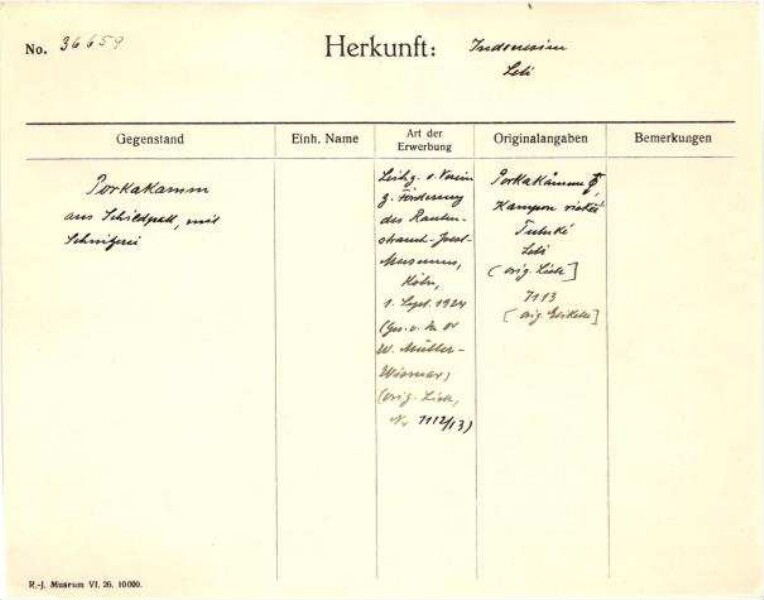 No. 36659
Herkunft: Indonesien
Leti
Gegenstand
Einh. Name
Art der
Erwerbung
Originalangaben
Bemerkungen
Porkakamm
aus Schildpatt, mit
Schnitzerei
Leihg. v. Verein
z. Förderung
des Rauten-
strauch-Joest-
Museums,
Köln,
1. Sept. 1924
(Ges. v.
W. Müller-
Wismar)
(orig. Liste,
N. 7112/13)
Porkakämme
Kampon
Tutuké
Leti
(orig. Liste]
7113
[orig. Etikette]
R.-J. Museum VI. 26. 10000.